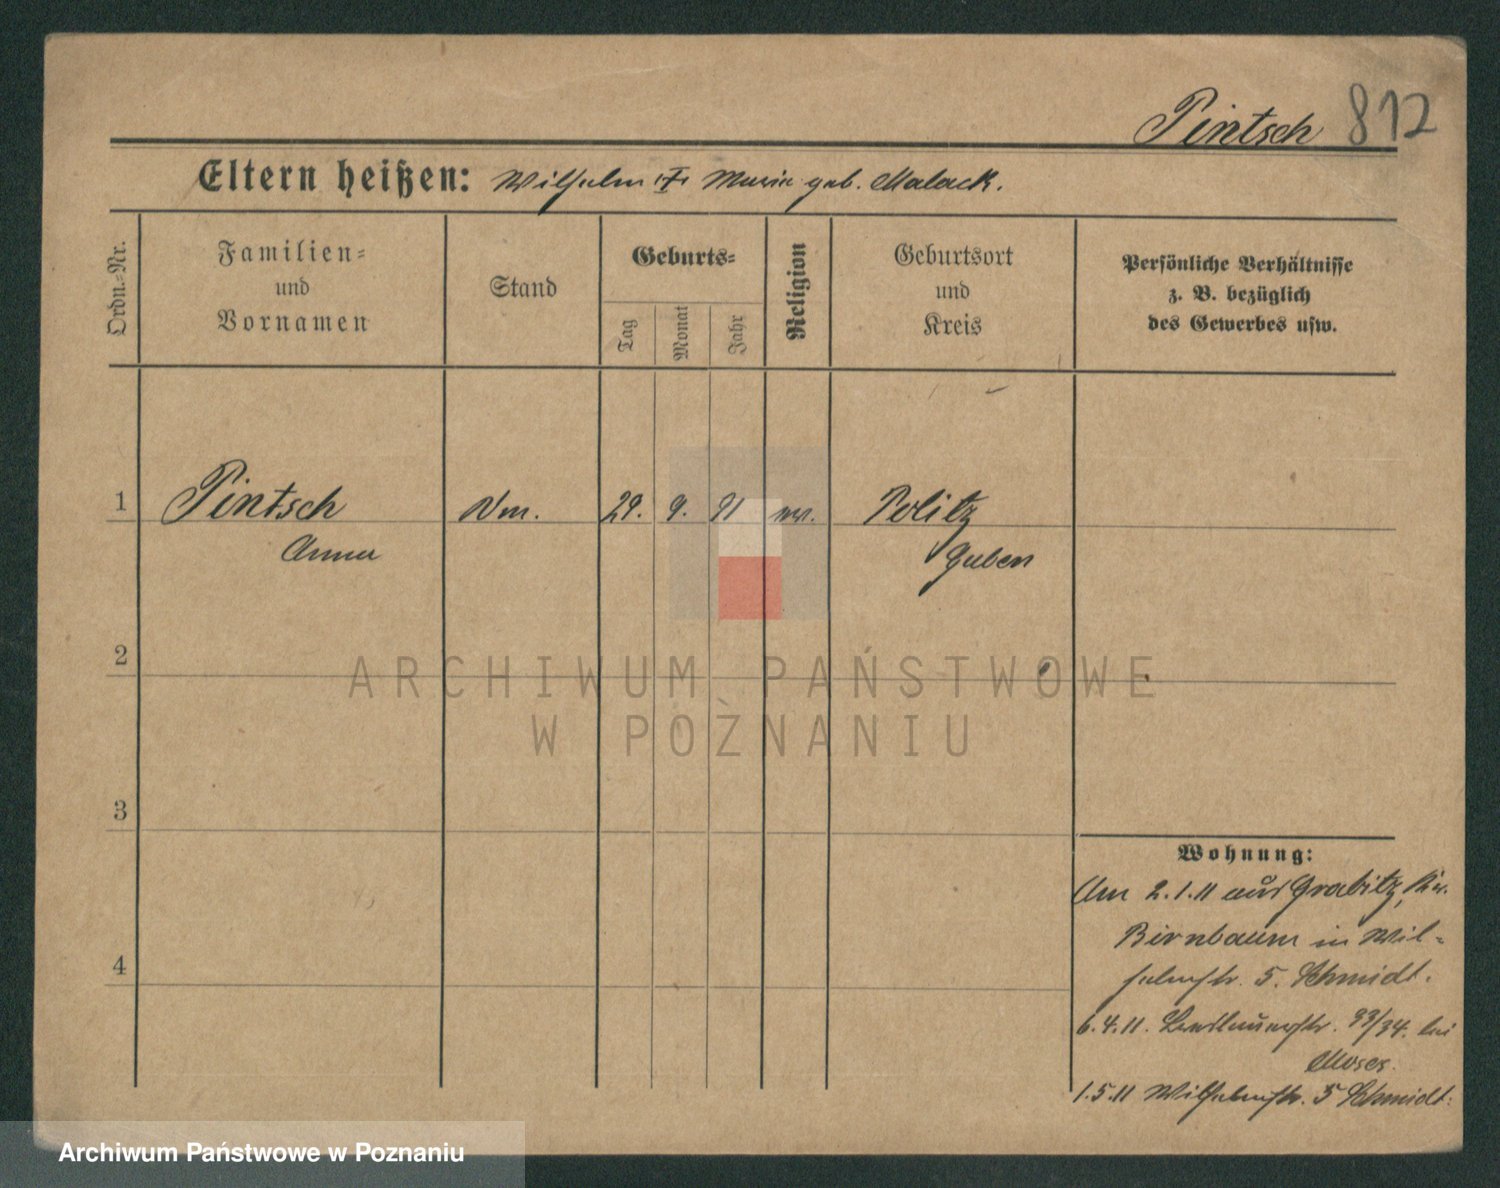 Pintsch 812
Eltern heißen: Wilhelm u. Marie geb. Malack.
Ordn.-Nr.
Familien-
und
Vornamen
Stand
Geburts-
Tag
Monat
Jahr
Religion
Geburtsort
und
Kreis
Persönliche Verhältnisse
z. B. bezüglich
des Gewerbes usw.
1 Pintsch 29. 9. 91 ev. Politz
Anna Guben
2
ARCHIWUM PAŃSTWOWE
W POZNANIU
3
Wohnung:
Am 2.1.11 aus Grabitz, Kr.
Birnbaum in Wil-
4
helmstr. 5. Schmidt.
6.4.11. 33/34. bei
Moses.
1.5.11 Wilhelmstr. 5 Schmidt.
Archiwum Państwowe w Poznaniu